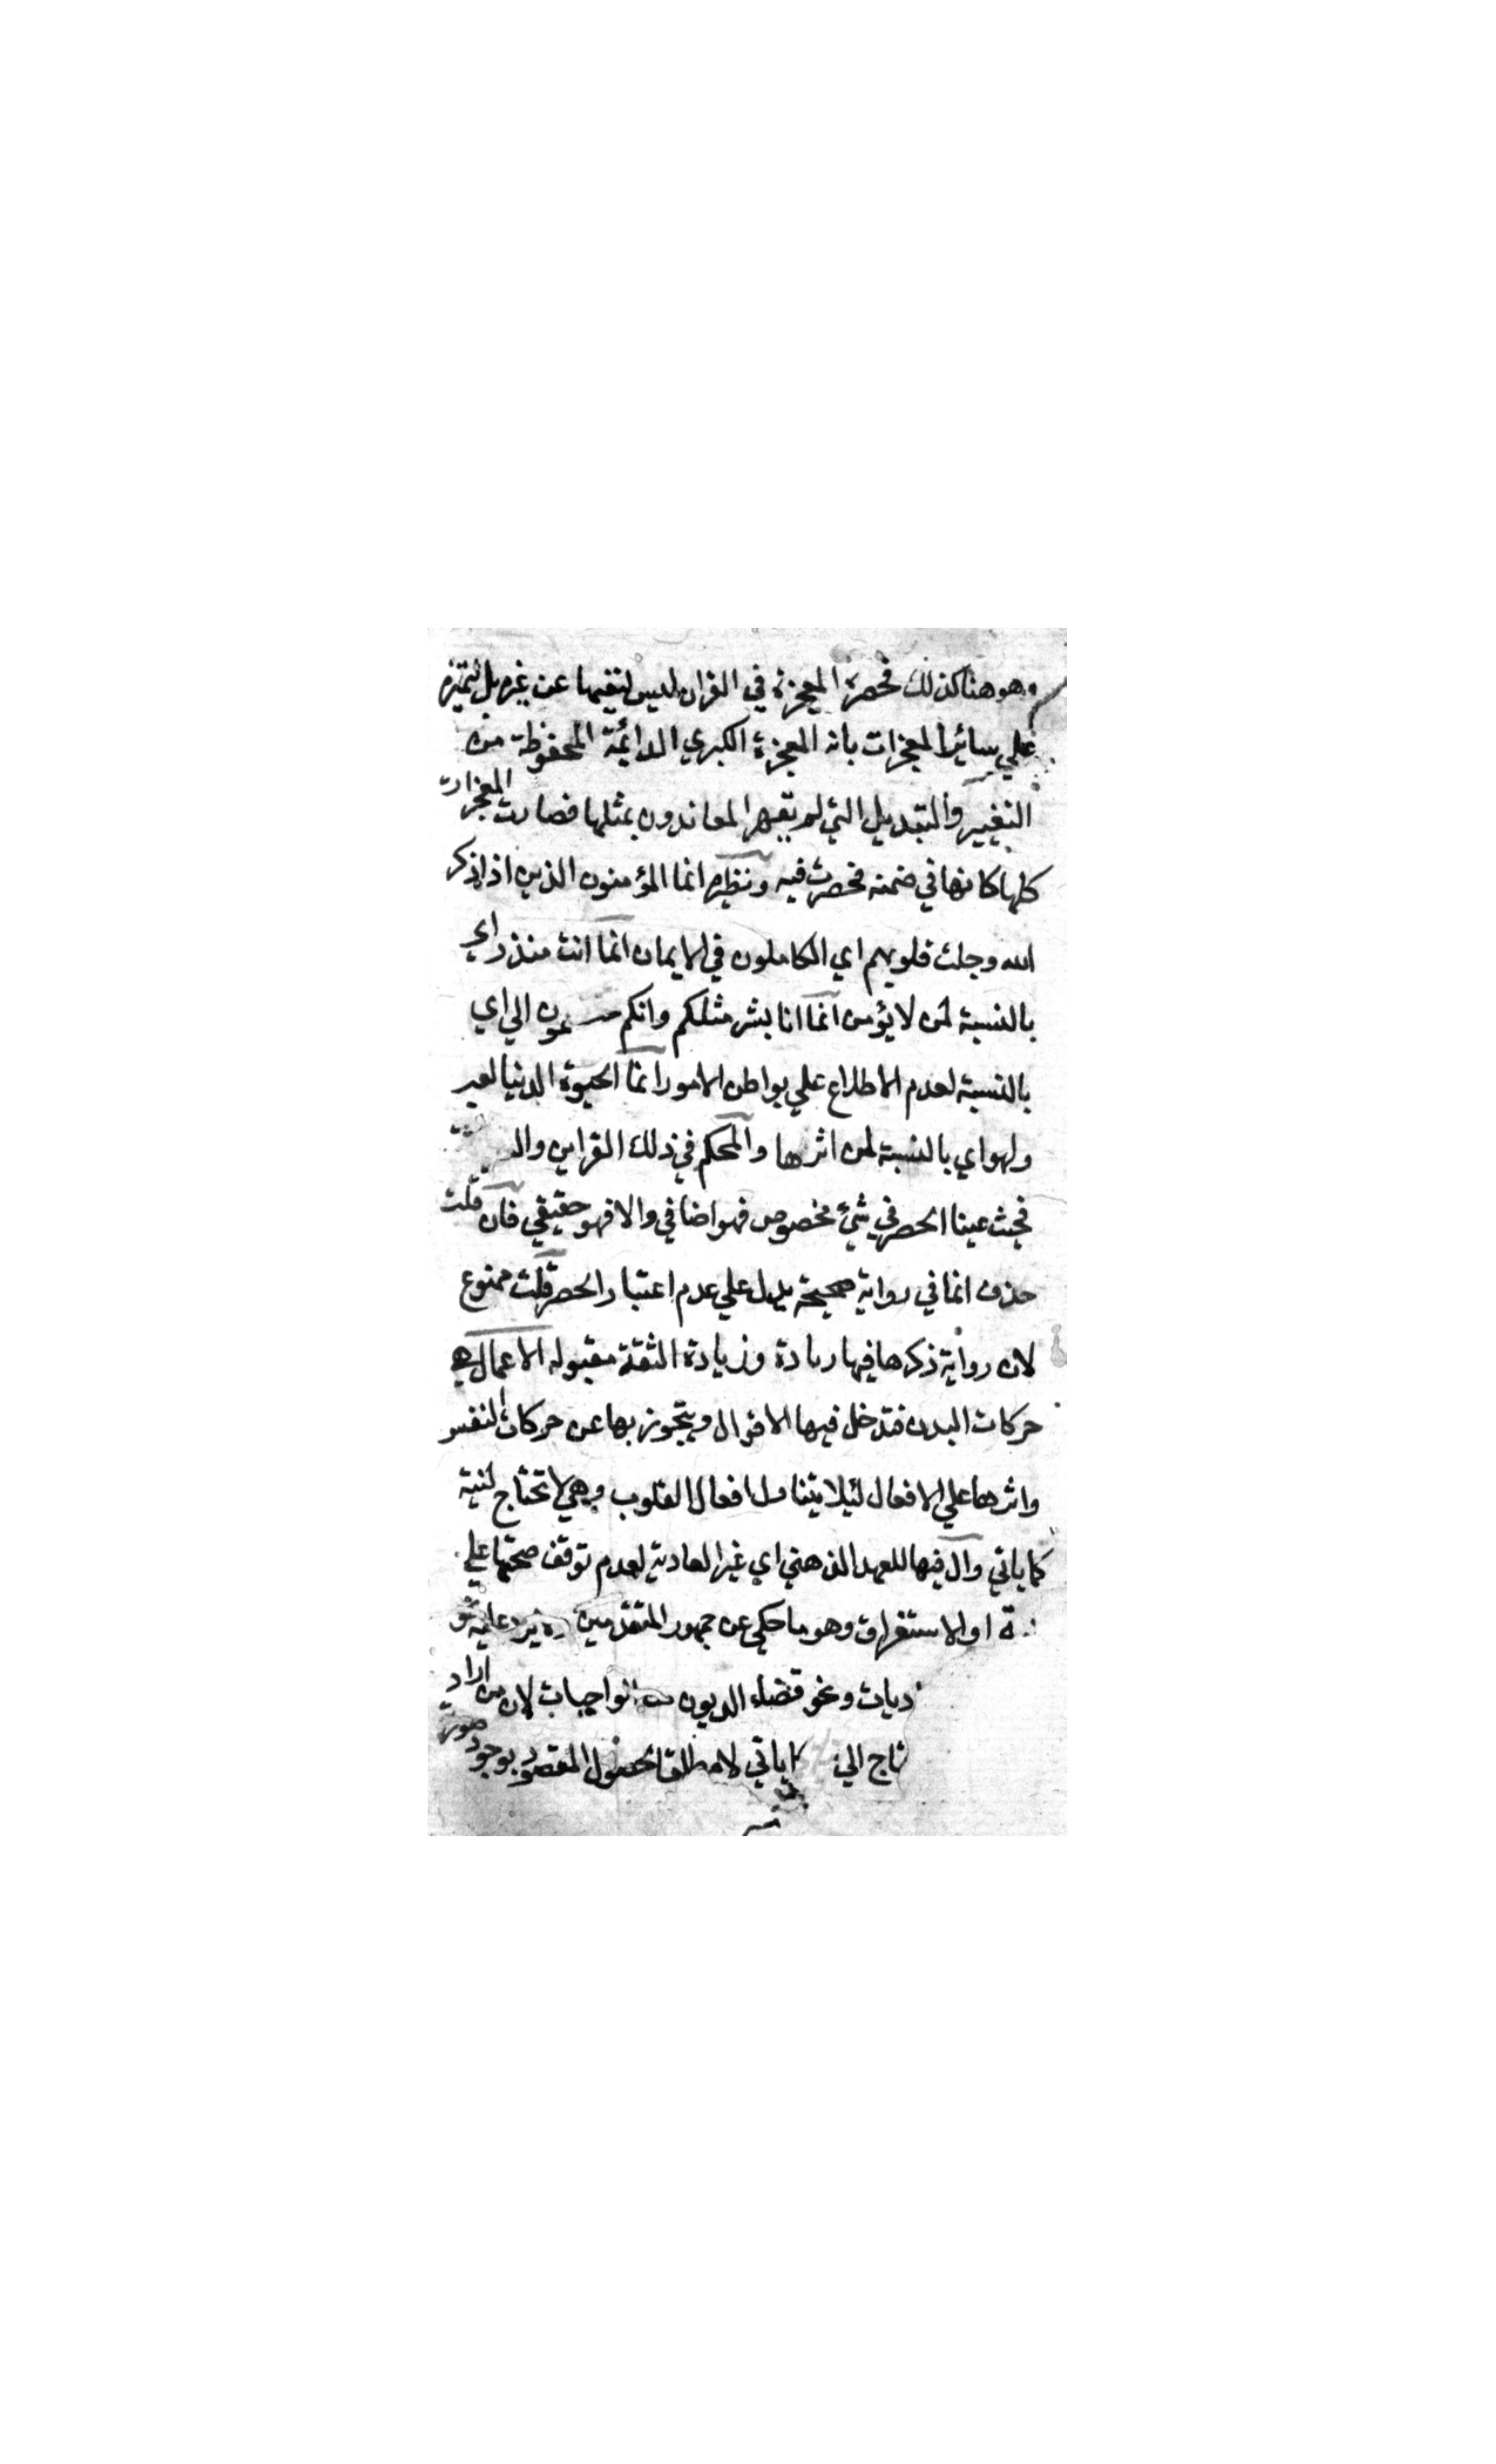 وهو هنا كذلك فحصر المعجزة في القران ليس لنفيها عن غيره بل لتميزه
علي سائر المعجزات بانه المعجزة الكبري الدائمة المحفوظة من
التغيير والتبديل التي لم يقهر المعاندون بمثلها فصارت المعجزات
كلها كانها في ضمنه فحصرت فيه ونظيره انما المؤمنون الذين اذا ذكر
الله وجلت قلوبهم اي الكاملون في الايمان انما انت منذر اي
بالنسبة لمن لا يؤمن انما انا بشر مثلكم وانكم الي اي
بالنسبة لعدم الاطلاع علي بواطن الامور انما الحيوة الدنيا لعب
ولهو اي بالنسبة لمن اثرها والمحكم في ذلك القراين
فحيث عينا الحصر في شيء مخصوص فهو اضافي والا فهو حقيقي فان قلت
حذف انما في رواية صحيحة يدل علي عدم اعتبار الحصر قلت ممنوع
لان رواية ذكرها فيها زيادة وزيادة الثقة مقبولة الاعمال هي
حركات البدن فتدخل فيها الاقوال ويتجوز بها عن حركات النفس
واثرها علي الافعال ليلا يتناول افعال القلوب وهي لا تحتاج لنية
كما ياتي وال فيها للعهد الذهني اي غير العادية لعدم توقف صحتها علي
او للاستغراق وهو ما حكي عن جمهور المتقدمين عليه نحو
ونحو قضاء الديون من الواجبات لان من اراد
الي ياتي لا مطلقا لحصول المقصود بوجود صورة